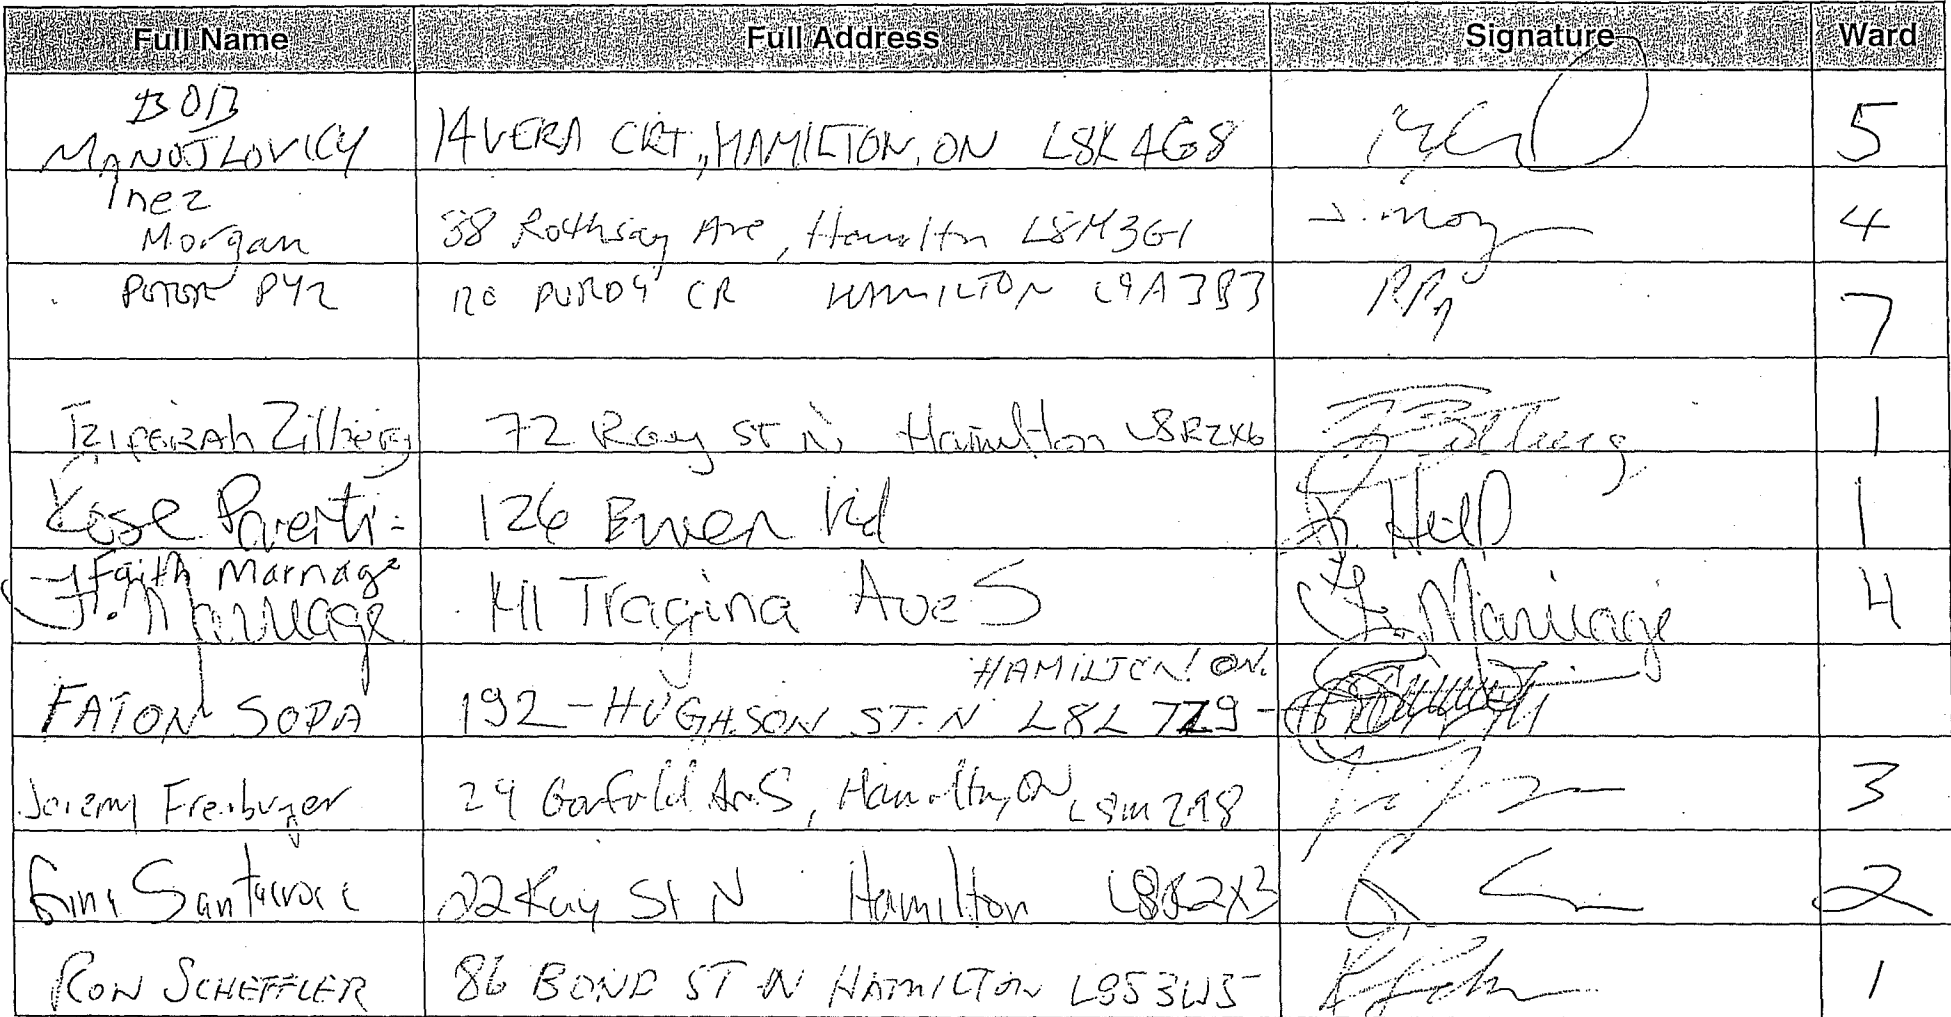 Full Name Full Address Signature Ward
BOB
MANOJLOVICH 14 VERA CRT., HAMILTON, ON L8K 4G8 5
Inez
Morgan 38 Rothsay Ave, Hamilton L8M3G1 4
PETER PYZ 120 PURDY CR HAMILTON L9A3B3 7
Tziporah Zilberg 72 Ray ST N, Hamilton L8R2X6 1
126 Ewen Rd 1
Faith Marriage
F. Marriage 141 Tragina Ave S F. Marriage 4
HAMILTON ON.
FATON SOPA 192 - HUGHSON ST. N L8L 7Z9
Jeremy Freiburger 29 Garfield Av. S, Hamilton, ON L8M 2R8 3
22 Ray St N Hamilton L8R2X3 2
RON SCHEFFLER 86 BOND ST N HAMILTON L8S3W5 1